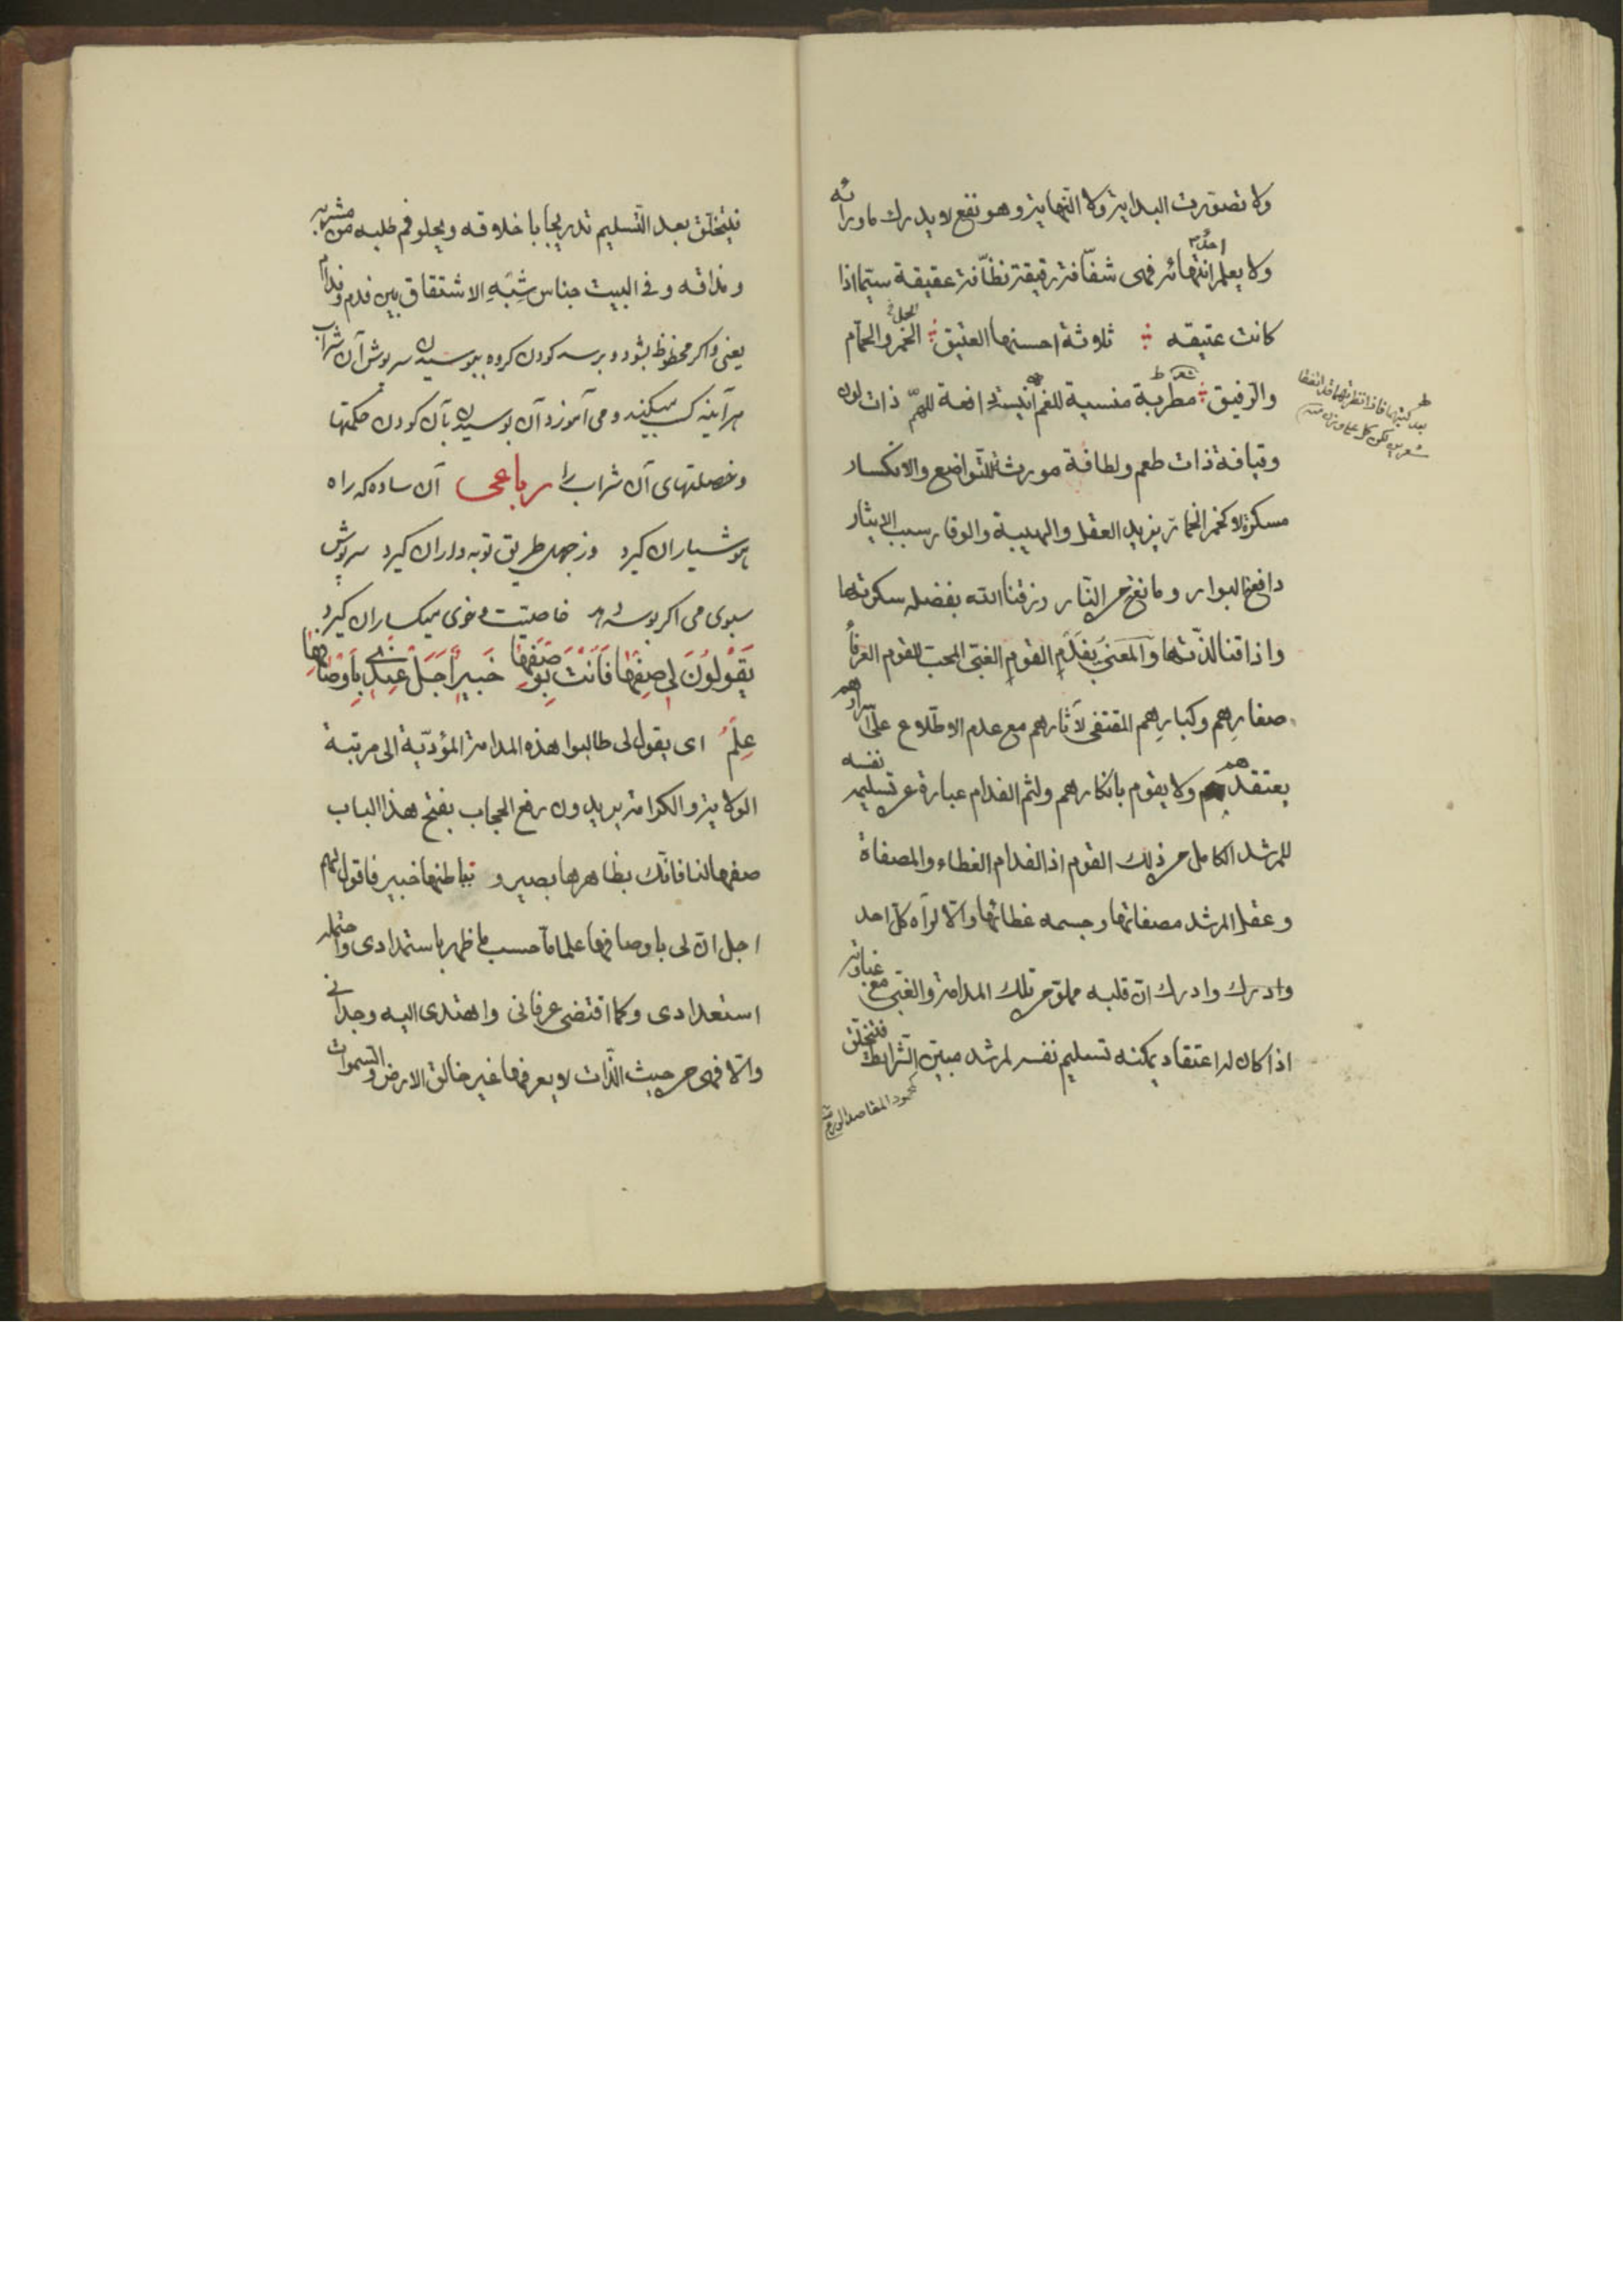 ولا تصورت البداية ولا النهاية وهو نفع لا يدرك ما ورائه
ولا يعلم احد انتهائه فهى شفّافة رقيقة نظّافة عقيقة سيّما اذا
كانت عتيقه ثلاثة احسنها العتيق الخمر والحمّام
والرفيق مطربة منسية للغم انيسة دافعة للهمّ ذات لون
وقيافة ذات طعم ولطافة مورثة للتواضع والانكسار
مسكرة لا كخمر الخمّار يزيد العقل والهيبة والوقار سبب الايثار
دافع البوار ومانع حر النّار رزقنا الله بفضله سكرتها
واذاقنا لذّتها والمعنى بفدم القوم الغبىّ المحبّ للقوم العرفاء
صغارهم وكبارهم المقتفى لآثارهم مع عدم الاطّلاع على اسرارهم
يعتقدهم ولا يقوم بانكارهم ولثم الفدام عبارة عن تسليم نفسه
للمرشد الكامل من ذلك القوم اذ الفدام الغطاء والمصفاة
وعقل المرشد مصفاتها وجسمه غطائها والّا لرآه كلّ احد
وادرك وادرك انّ قلبه مملوّ من تلك المدامة والغبىّ مع غباوته
اذا كان له اعتقاد يمكنه تسليم نفسه لمرشد مبيّن الشّرايط فتتخلّق
فيتخلّق بعد التّسليم تدريجا باخلاقه ويحلو فم طلبه من مشربه
ومذاقه وفى البيت جناس شبه الاشتقاق بين فدم وفدام
يعنى واكر محظوظ بشود وبرسد كودن كروه ببوسيدن سرپوش آن شراب
هرآينه كسب ميكند ومى آموزد آن بوسيدن بآن كودن حكمتها
وخصلتهاى آن شراب را رباعى آن ساده كه راه
هوشياران كيرد وز جهل طريق توبه داران كيرد سرپوش
سبوى مى اكر بوسه زند خاصيت وخوى ميكساران كيرد
يَقُولُونَ لِى صِفْهَا فَأَنْتَ بِوَصْفِهَا خَبِيرٌ أَجَلْ عِنْدِى بِأَوْصَافِهَا
عِلْمُ اى يقول لى طالبوا هذه المدامة المؤدّية الى مرتبة
الولاية والكرامة يريدون رفع الحجاب بفتح هذا الباب
صفها لنا فانّك بظاهرها بصير وبباطنها خبير فاقول لهم
اجل ان لى باوصافها علما ما حسب ما ظهر باستمدادى واحتمله
استعدادى وكما اقتضى عرفانى واهتدى اليه وجدانى
والّا فهى من حيث الذّات لا يعرفها غير خالق الارض والسّموات